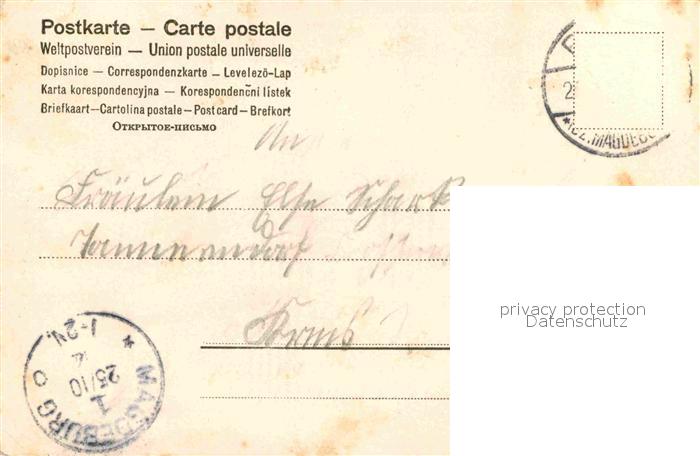 Postkarte — Carte postale
Weltpostverein — Union postale universelle
Dopisnice — Correspondenzkarte — Levelező-Lap
Karta korespondencyjna — Korespondenční listek
Briefkaart—Cartolina postale—Post card—Brefkort
Открытое-письмо
An
Fräulein Else Schark
privacy protection
Datenschutz
* MAGDEBURG
1
25/10
1-2N.